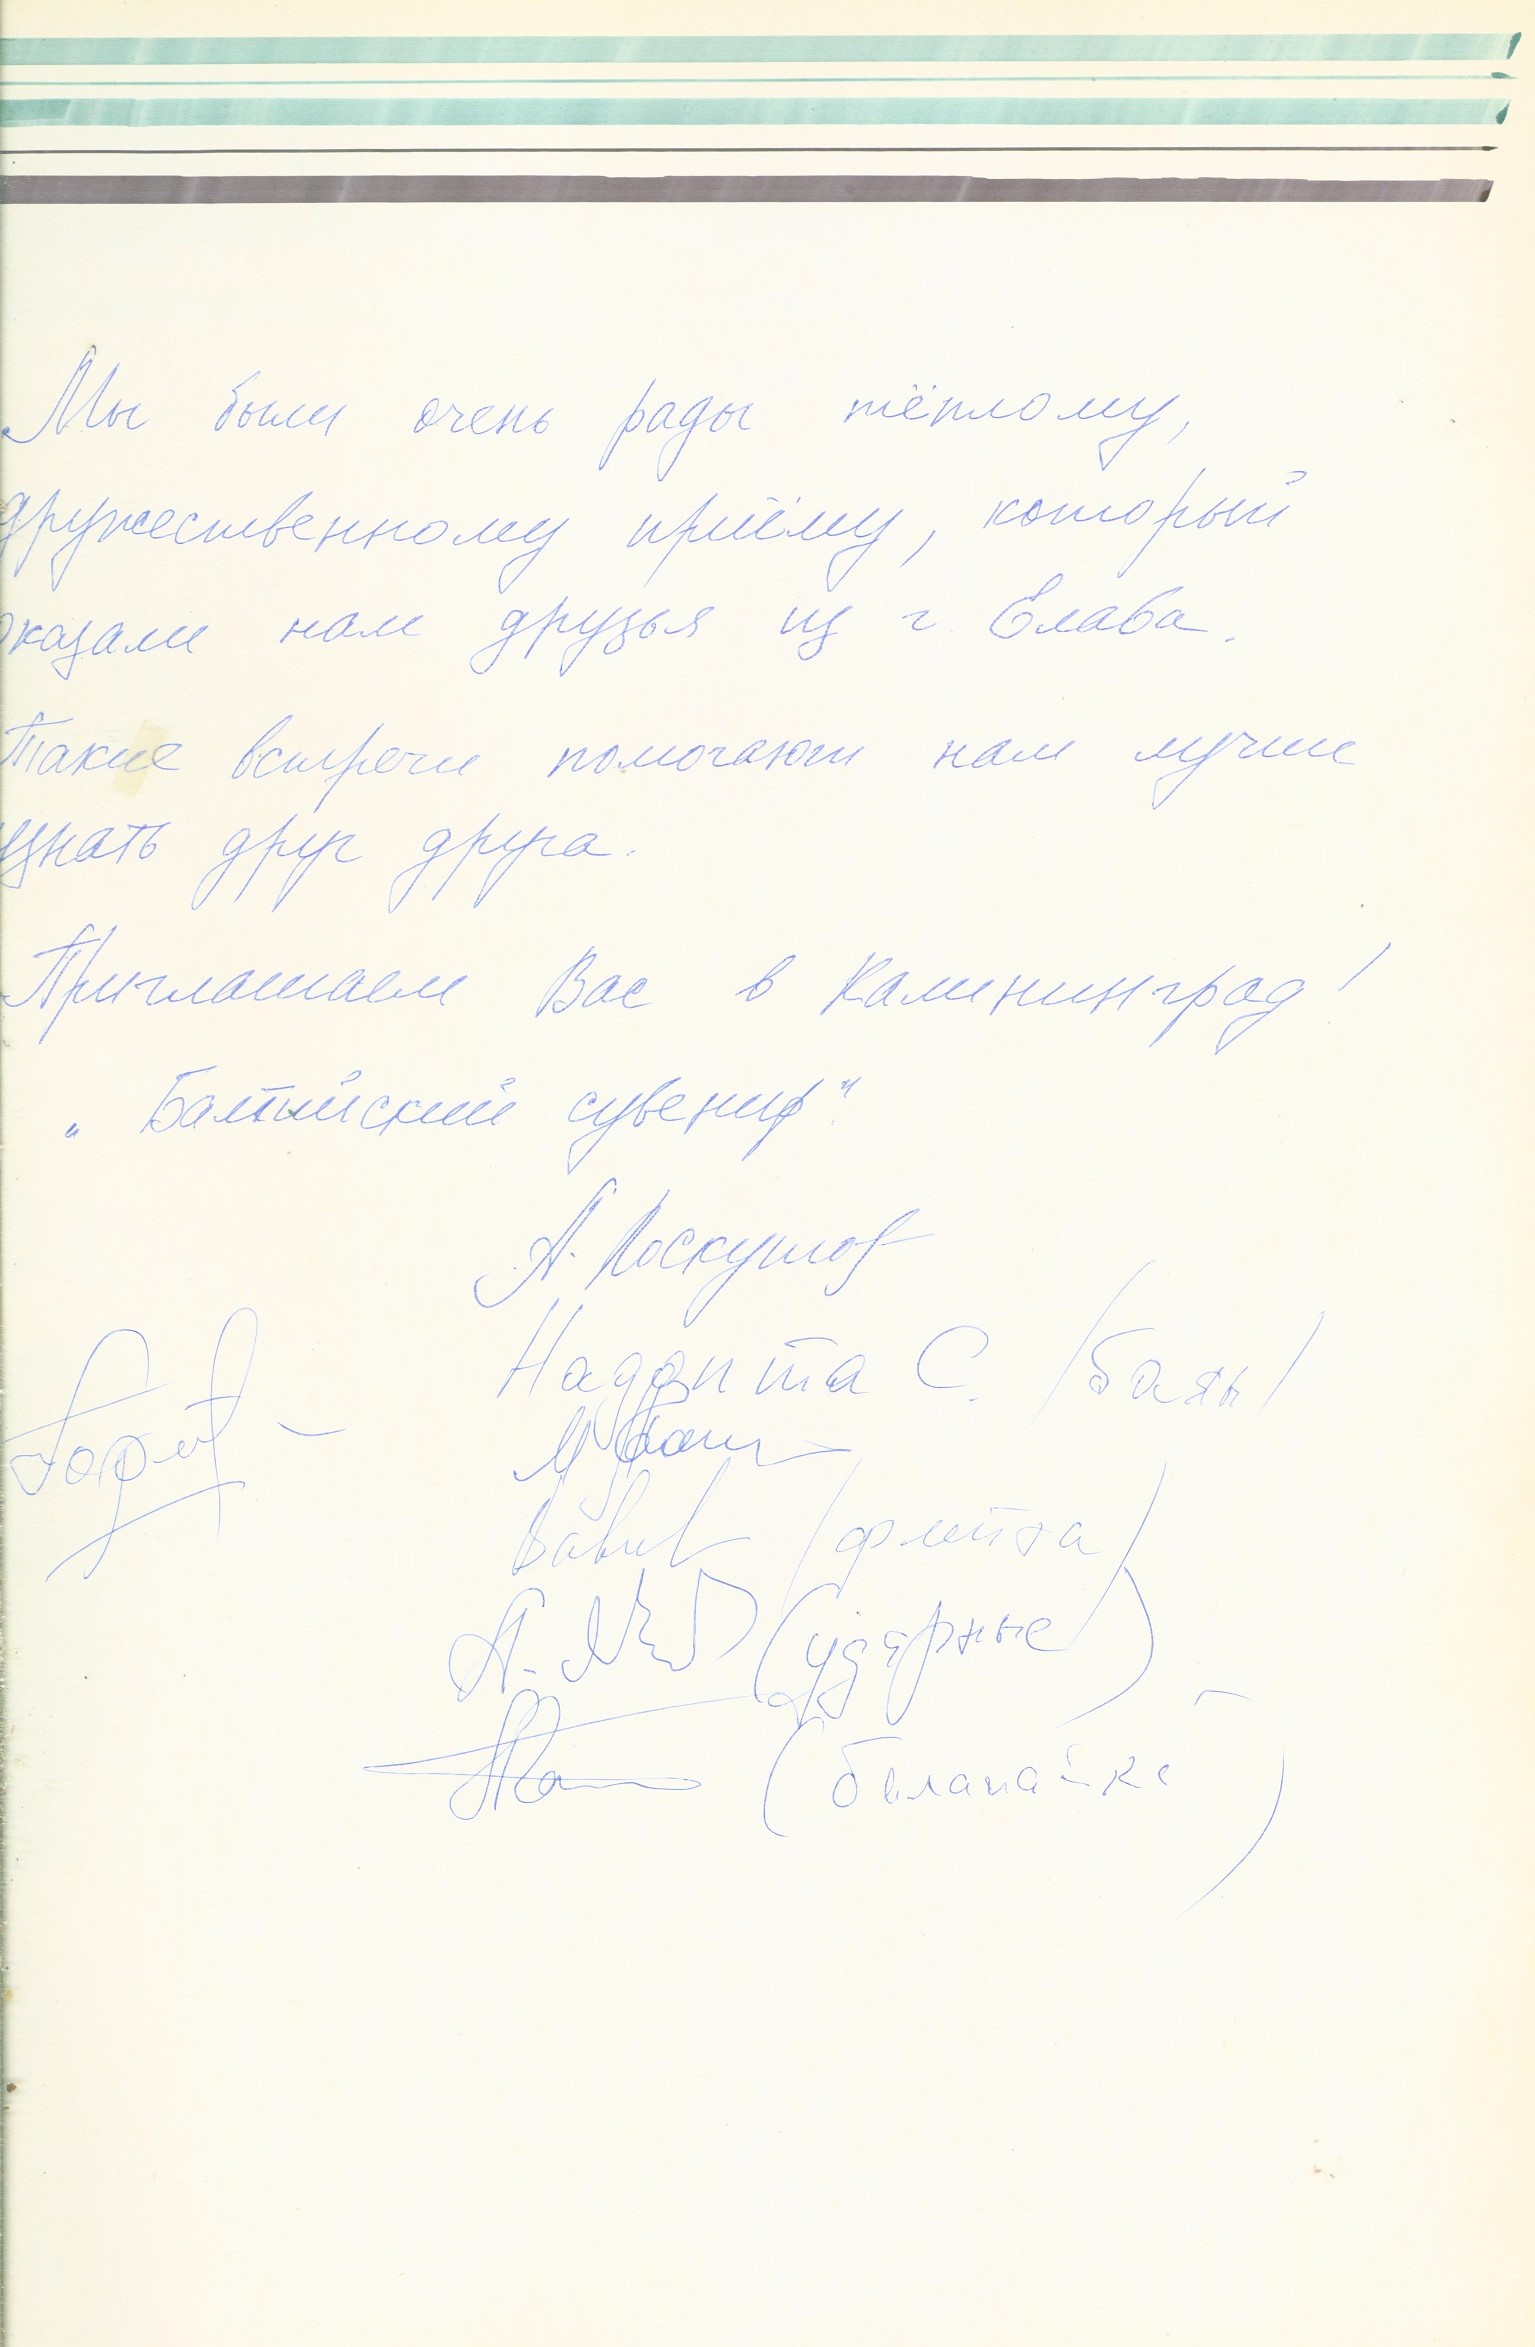 Мы были очень рады тёплому,
дружественному приёму, который
оказали нам друзья из г. Елава.
Такие встречи помогают нам лучше
узнать друг друга.
Приглашаем Вас в Калининград!
„Балтийский сувенир"
А. Лоскутов
С. /баян/
/флейта/
А. (ударные)
(балалайка)